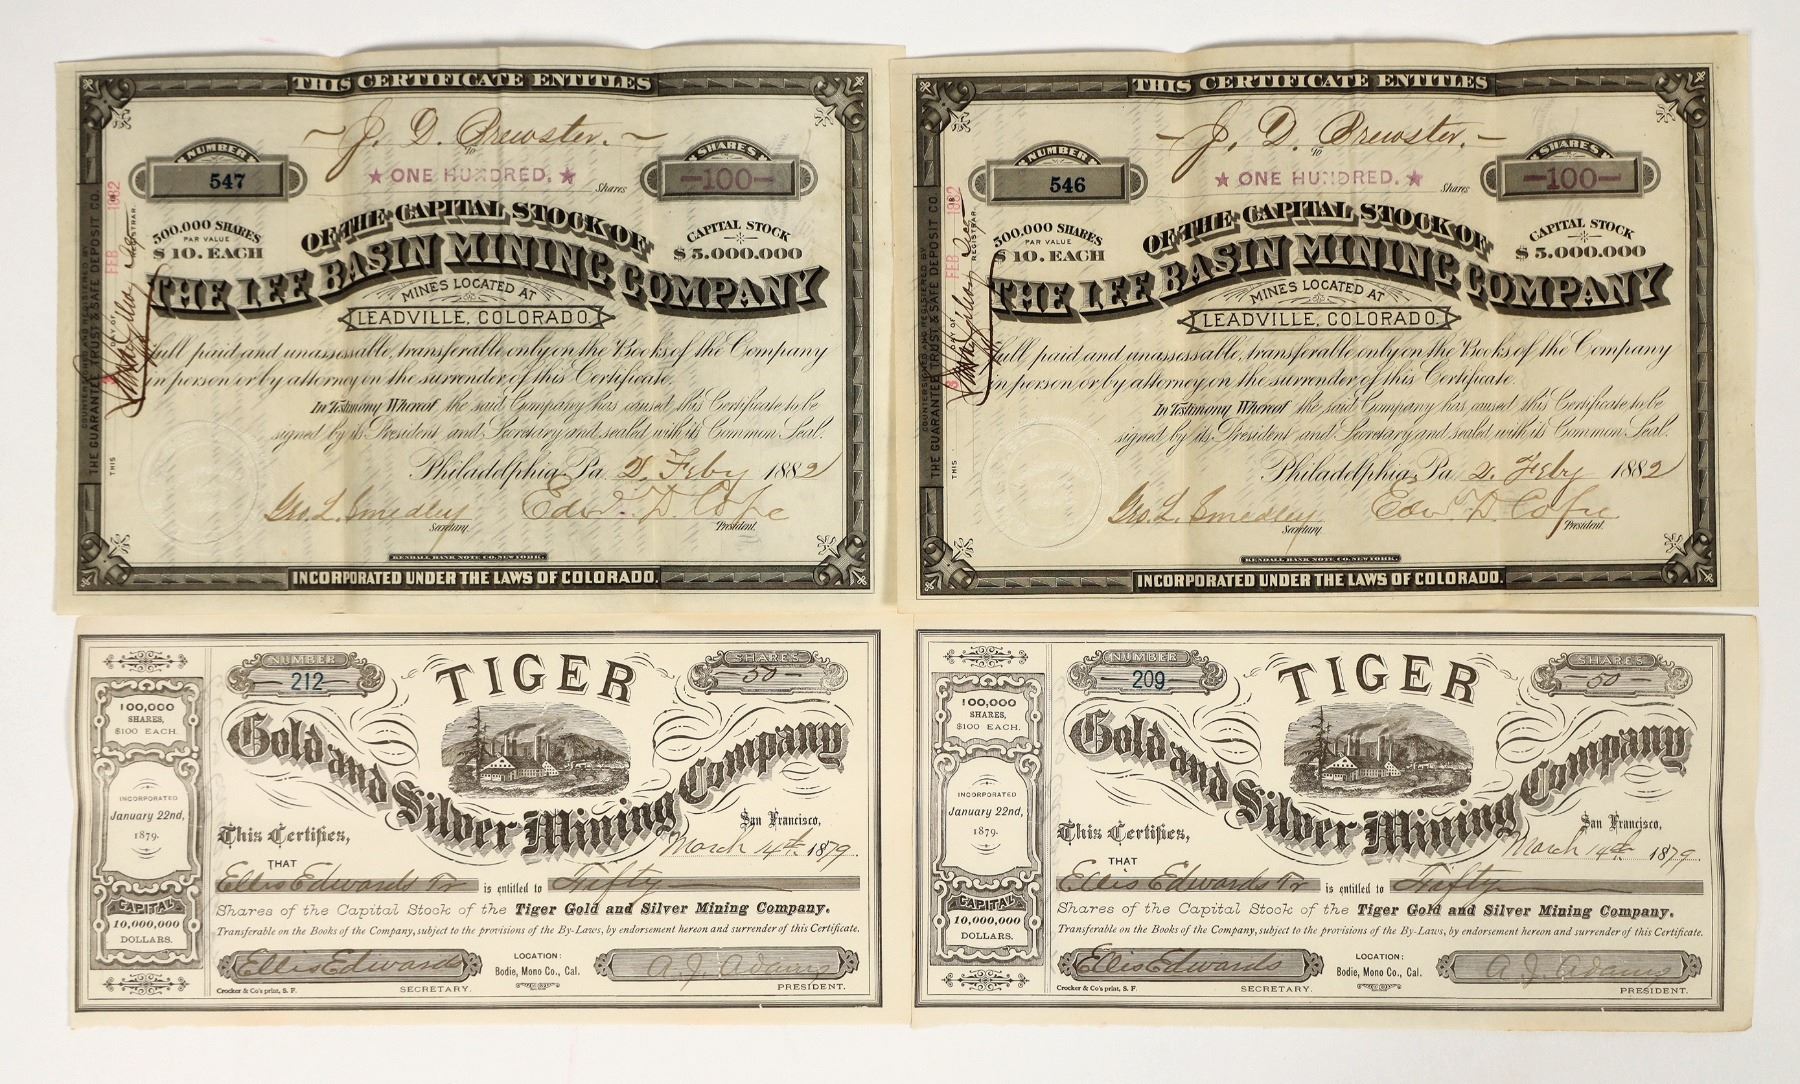 THIS CERTIFICATE ENTITLES
~ J. D. Brewster. ~
TO
NUMBER
547
★ ONE HUNDRED. ★
Shares
SHARES
-100-
500.000 SHARES
PAR VALUE
$10. EACH
OF THE CAPITAL STOCK OF
CAPITAL STOCK
$5.000.000
THE LEE BASIN MINING COMPANY
MINES LOCATED AT
LEADVILLE, COLORADO.
full paid and unassessable, transferable only on the Books of the Company
in person or by attorney on the surrender of this Certificate.
In Testimony Whereof the said Company has caused this Certificate to be
signed by its President and Secretary and sealed with its Common Seal.
Philadelphia, Pa. 2. Feby 1882
Geo. L. Smedley
Secretary.
Edw. D. Cope
President.
KENDALL BANK NOTE CO. NEW YORK.
INCORPORATED UNDER THE LAWS OF COLORADO.
COUNTERSIGNED AND REGISTERED BY
THE GUARANTEE TRUST & SAFE DEPOSIT CO.
THIS
DAY OF
FEB 1882
REGISTRAR.
THIS CERTIFICATE ENTITLES
– J. D. Brewster. –
TO
NUMBER
546
★ ONE HUNDRED. ★
Shares
SHARES
-100-
500.000 SHARES
PAR VALUE
$10. EACH
OF THE CAPITAL STOCK OF
CAPITAL STOCK
$5.000.000
THE LEE BASIN MINING COMPANY
MINES LOCATED AT
LEADVILLE, COLORADO.
full paid and unassessable, transferable only on the Books of the Company
in person or by attorney on the surrender of this Certificate.
In Testimony Whereof the said Company has caused this Certificate to be
signed by its President and Secretary and sealed with its Common Seal.
Philadelphia, Pa. 2. Feby 1882
Geo. L. Smedley
Secretary.
Edw. D. Cope
President.
KENDALL BANK NOTE CO. NEW YORK.
INCORPORATED UNDER THE LAWS OF COLORADO.
COUNTERSIGNED AND REGISTERED BY
THE GUARANTEE TRUST & SAFE DEPOSIT CO.
THIS
DAY OF
FEB 1882
REGISTRAR.
NUMBER
212
TIGER
SHARES
-50-
100,000
SHARES,
$100 EACH.
Gold and Silver Mining Company
INCORPORATED
January 22nd,
1879.
San Francisco,
March 14th. 1879.
This Certifies,
THAT
Ellis Edwards Tr is entitled to Fifty
CAPITAL
10,000,000
DOLLARS.
Shares of the Capital Stock of the Tiger Gold and Silver Mining Company.
Transferable on the Books of the Company, subject to the provisions of the By-Laws, by endorsement hereon and surrender of this Certificate.
Ellis Edwards
LOCATION:
Bodie, Mono Co., Cal.
A. J. Adams
Crocker & Co's print, S. F.
SECRETARY.
PRESIDENT.
NUMBER
209
TIGER
SHARES
-50-
100,000
SHARES,
$100 EACH.
Gold and Silver Mining Company
INCORPORATED
January 22nd,
1879.
San Francisco,
March 14th. 1879.
This Certifies,
THAT
Ellis Edwards Tr is entitled to Fifty
CAPITAL
10,000,000
DOLLARS.
Shares of the Capital Stock of the Tiger Gold and Silver Mining Company.
Transferable on the Books of the Company, subject to the provisions of the By-Laws, by endorsement hereon and surrender of this Certificate.
Ellis Edwards
LOCATION:
Bodie, Mono Co., Cal.
A. J. Adams
Crocker & Co's print, S. F.
SECRETARY.
PRESIDENT.